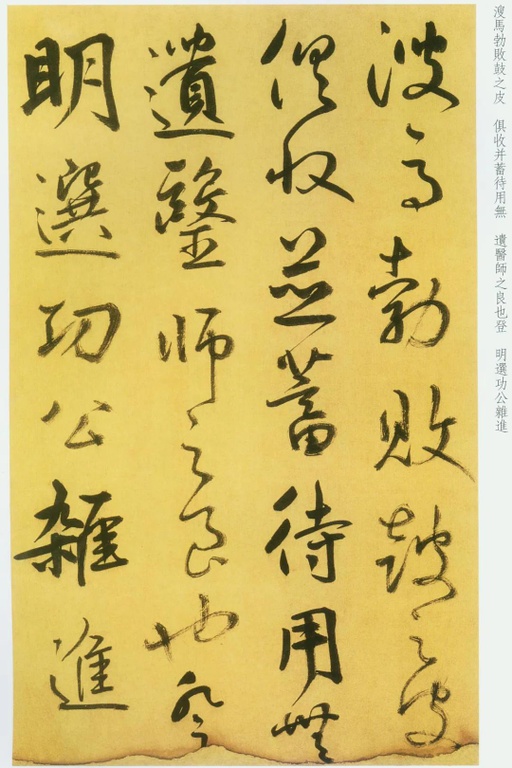 溲馬勃敗鼓之皮 俱收并蓄待用無 遺醫師之良也登 明選功公雜進
溲馬勃敗鼓之皮
俱收並蓄待用無
遺醫師之良也登
明選功公雜進